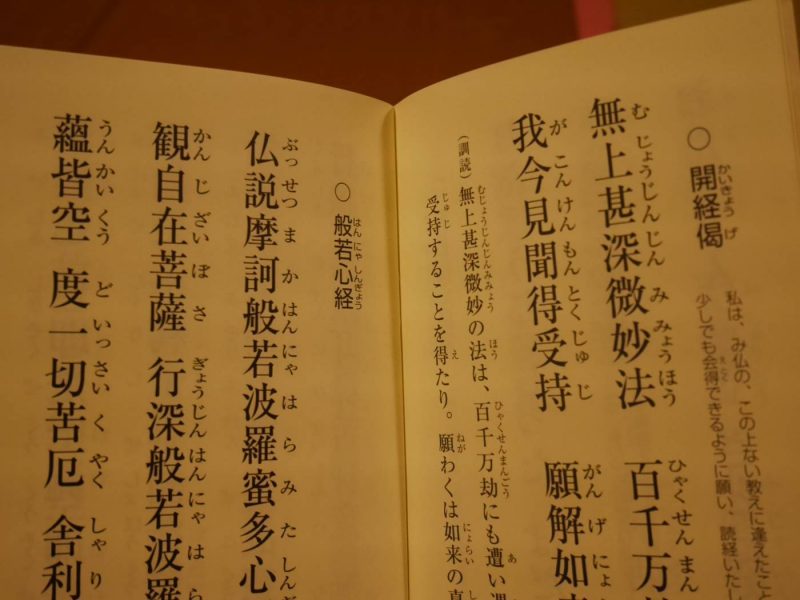 かいきょうげ
○ 開経偈
私は、み仏の、この上ない教えに逢えたこと
えとく
少しでも会得できるように願い、読経いたし
むじょうじんじんみみょうほう ひゃくせんまん
無上甚深微妙法 百千万
がこんけんもんとくじゅじ がんげにょ
我今見聞得受持 願解如
むじょうじんじんみみょう ほう ひゃくせんまんごう あ
（訓読）無上甚深微妙の法は、百千万劫にも遭い
じゅじ え ねが にょらい
受持することを得たり。願わくは如来の真
はんにゃしんぎょう
○ 般若心経
ぶっせつまかはんにゃはらみたしんぎ
仏説摩訶般若波羅蜜多心
かんじざいぼさ ぎょうじんはんにゃはら
観自在菩薩 行深般若波羅
うんかいくう どいっさいくやく しゃり
蘊皆空 度一切苦厄 舎利